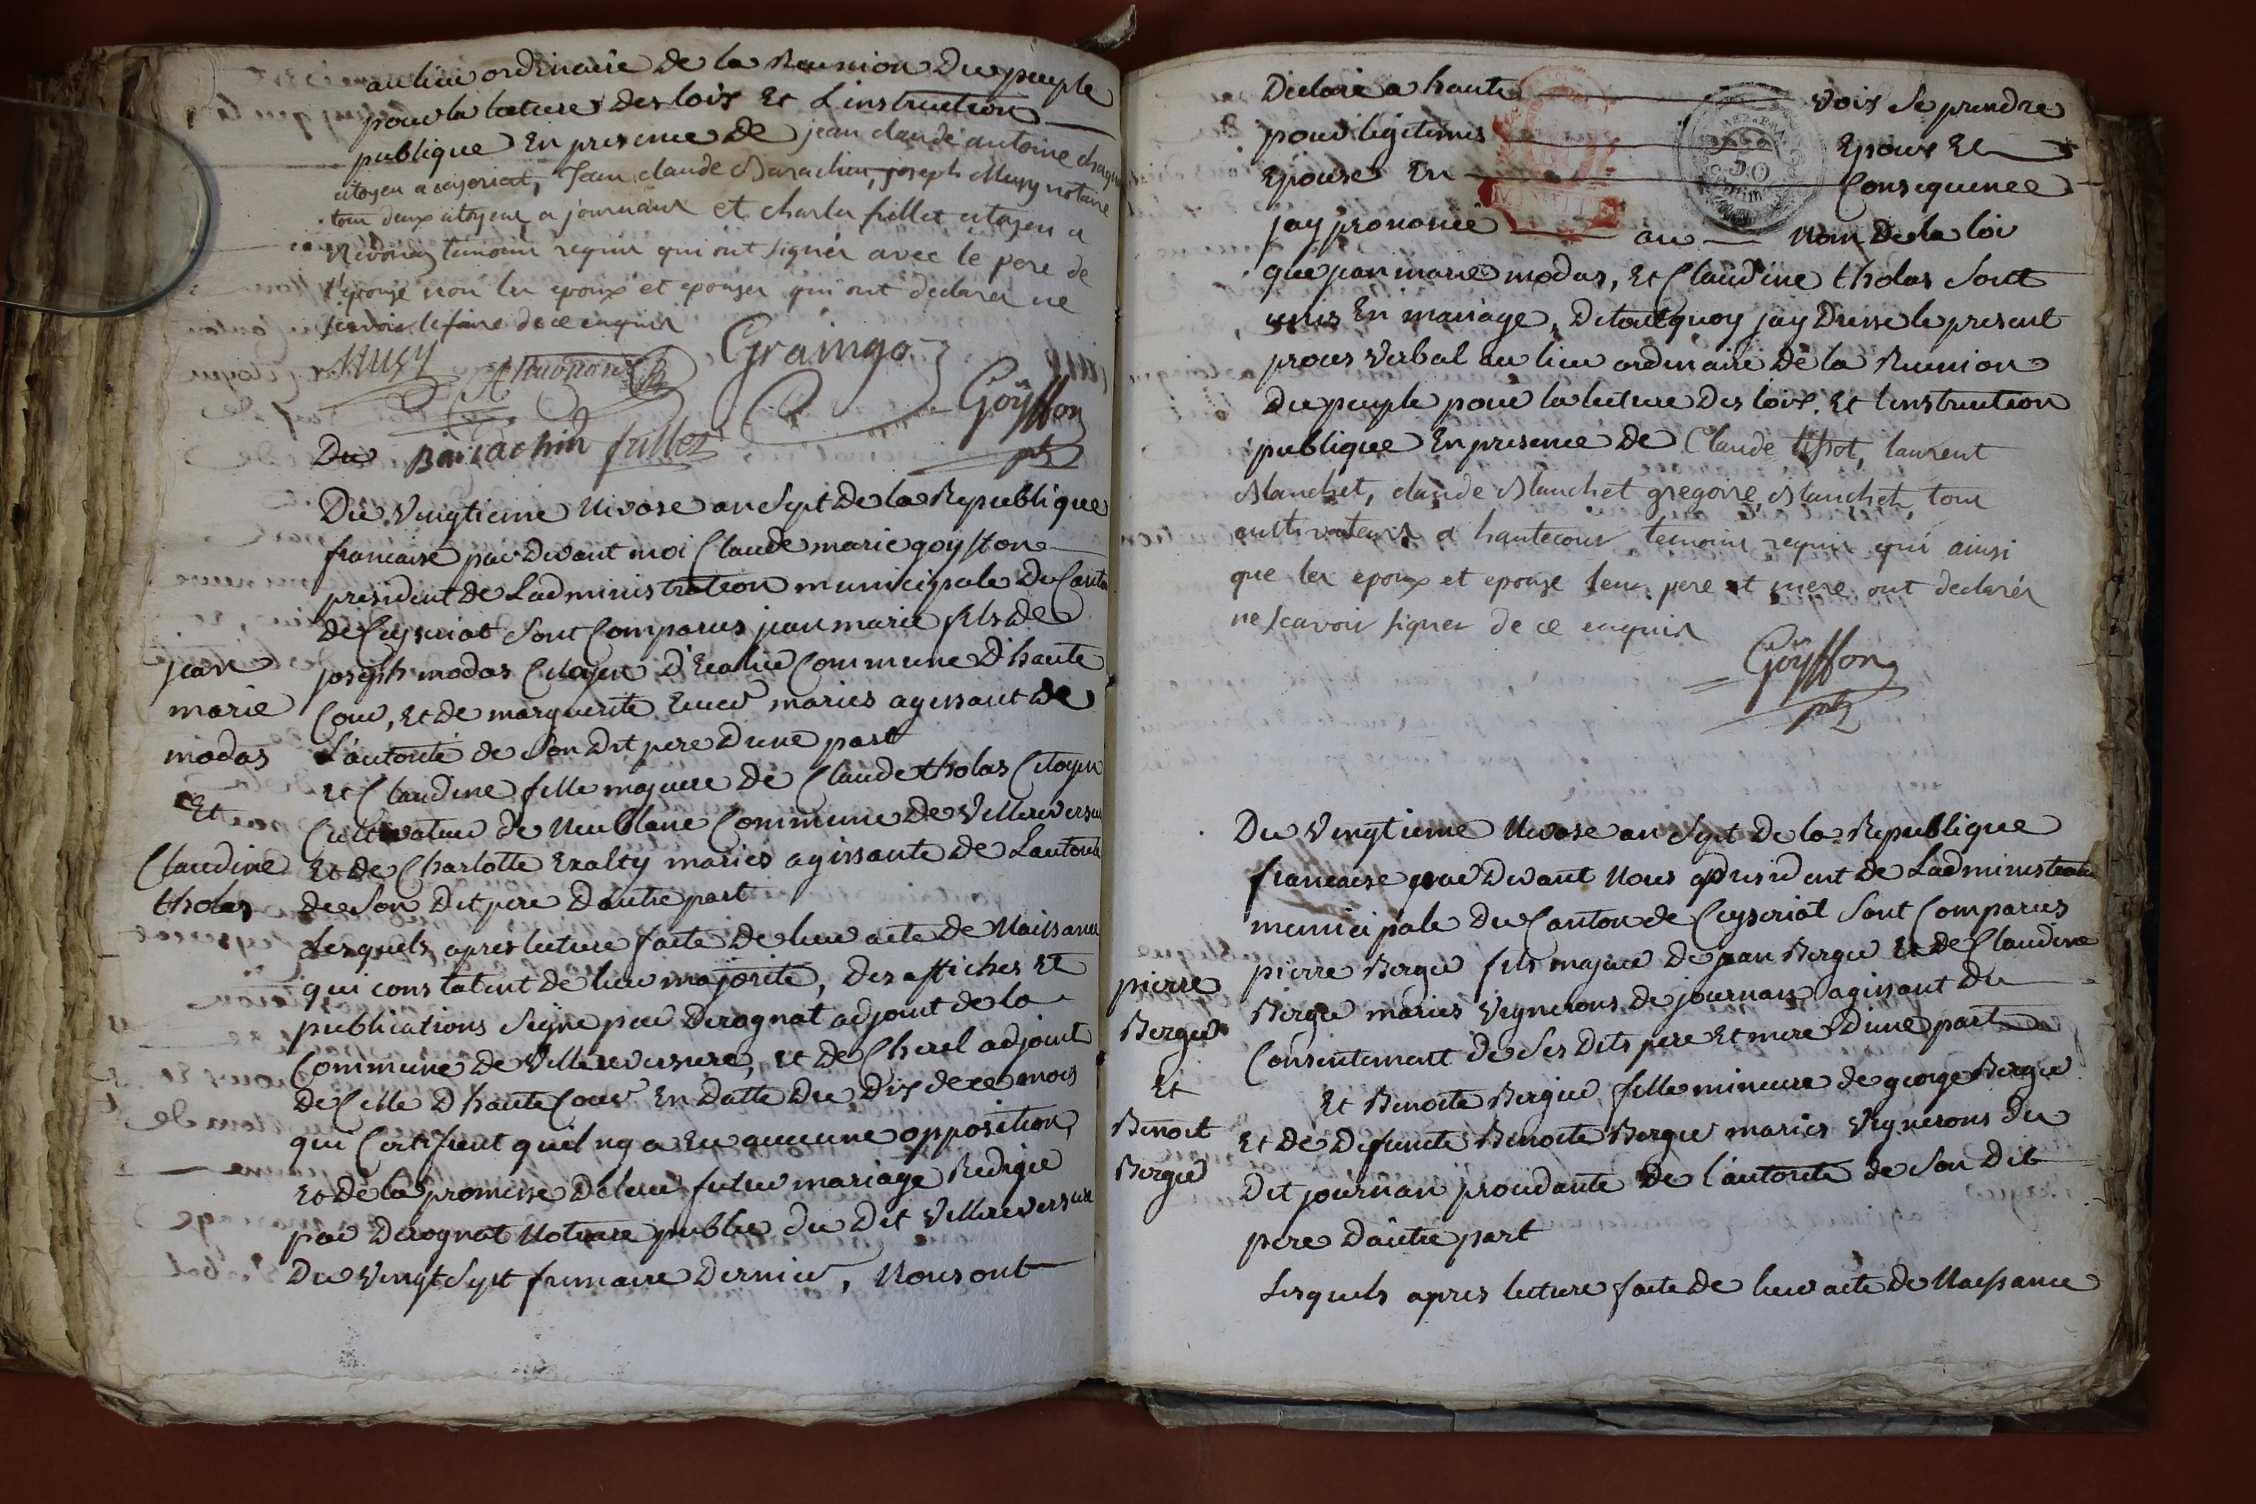 au lieu ordinaire de la Reunion du peuple
pour la lecture des loix Et L'instruction
publique En presence de jean claude antoine
citoyen a ceyseriat, Jean claude Barachin, joseph Musy notaire
tous deux citoyens a journans et charles fillet citoyen a
Revonas temoins requis qui ont signés avec le pere de
l'epouse non les epoux et epouser qui ont declarer ne
scavoir le faire de ce enquis
Musy
Graingo
Goÿffon
Du Barrachin fillet
pt
Du Vingtieme Nivose an Sept de la Republique
francaise par devant moi Claude marie goyffon
president de Ladministration municipale du Canton
de Ceyseriat Sont Comparus jean marie fils de
joseph modas Citoyen D' Commune D'haute
Cour, Et de marguerite maries agissant de
L'autorité de Son Dit pere Dune part
Et Claudine fille majeure de Claude tholas Citoyen
Cultivateur de Commune de Villereversure
Et de Charlotte maries agissante de Lautorité
de Son Dit pere Dautre part
Lesquels apres lecture faite de leur acte de Naissance
qui constatent de leur majorité, des affiches Et
publications Signé par Derognat adjoint de la
Commune de Villereversure, et de Cherel adjoint
de Celle D'hauteCour En datte Du Dix de ce mois
qui Certifient quil ny a Eu aucune opposition,
Et de la promesse de leur futur mariage Redigée
par Derognat Notaire public du Dit Villereversure
Du Vingt Sept frimaire Dernier, Nous ont
jean
marie
modas
Et
Claudine
tholas
Declaré a haute voix Se prendre
pour legitimes Epoux Et
Epouse En Consequence
jay prononcé au Nom De la loi
que jean marie modas, Et Claudine tholas Sont
unis En mariage, De tout quoy jay Dressé le present
proces Verbal au lieu ordinaire de la Reunion
du peuple pour la lecture des loix. Et Linstruction
publique En presence de Claude tissot, laurent
Blanchet, claude Blanchet gregoire Blanchet, tous
cultivateurs a hautecour temoins requis qui ainsi
que les epoux et epouse leur pere et mere ont declarés
ne scavoir signer de ce enquis
Goÿffon
pt
Du Vingtieme Nivose an Sept de la Republique
francaise par Devant Nous president de Ladministration
municipale Du Canton de Ceyseriat Sont Comparus
pierre Berger fils majeur de jean Berger Et de Claudine
Berger mariés Vignerons de journans agissant du
Consentement de Ses Dits pere Et mere D'une part
Et Benoite Berger fille mineure de george Berger
Et de Defunte Benoite Berger mariés Vignerons du
Dit journan procedante De l'autorité de Son Dit
pere D'autre part
Lesquels apres lecture faite de leur acte de Naissance
pierre
Berger
Et
Benoit
Berger